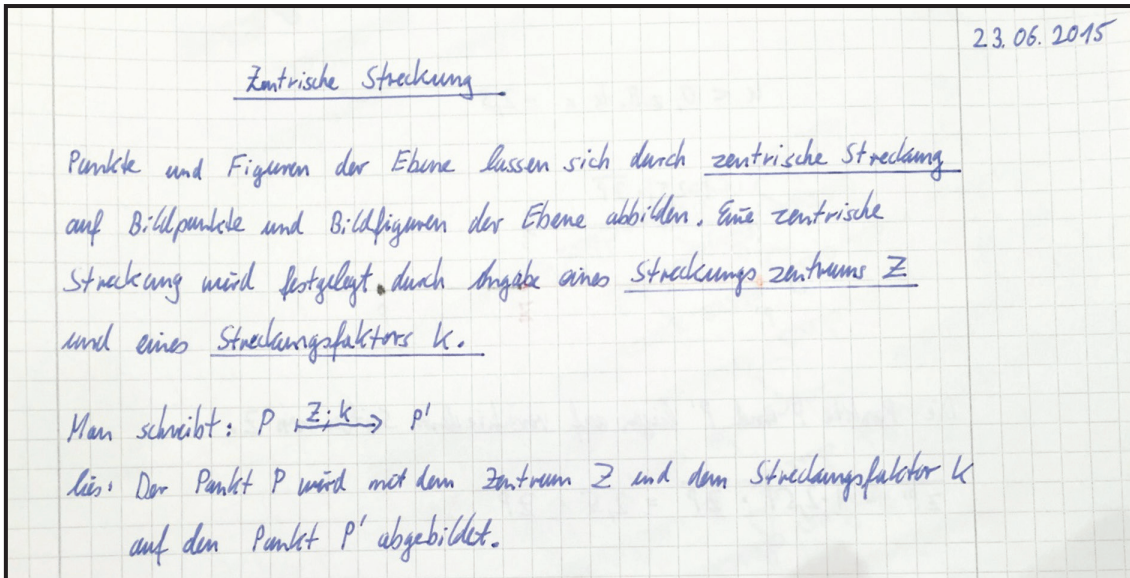 23.06.2015
Zentrische Streckung
Punkte und Figuren der Ebene lassen sich durch zentrische Streckung
auf Bildpunkte und Bildfiguren der Ebene abbilden. Eine zentrische
Streckung wird festgelegt durch Angabe eines Streckungszentrums Z
und eines Streckungsfaktors k.
Man schreibt: P Z;k → P'
lies: Der Punkt P wird mit dem Zentrum Z und dem Streckungsfaktor k
auf den Punkt P' abgebildet.